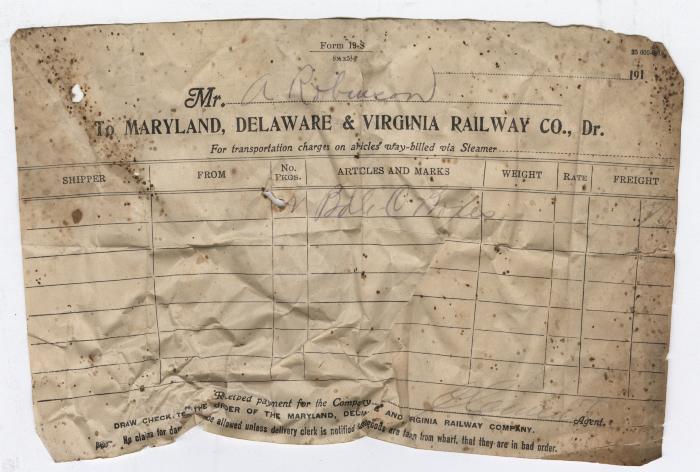 Form 19-S
191
Mr. A Robinson
To MARYLAND, DELAWARE & VIRGINIA RAILWAY CO., Dr.
For transportation charges on aticles way-billed via Steamer
SHIPPER FROM No. PKGS. ARTCLES AND MARKS WEIGHT RATE FREIGHT
Received payment for the Company
Agent.
DRAW CHECK TO THE ORDER OF THE MARYLAND, DEL E AND VIRGINIA RAILWAY COMPANY.
No claims for dam be allowed unless delivery clerk is notified goods are taken from wharf, that they are in bad order.